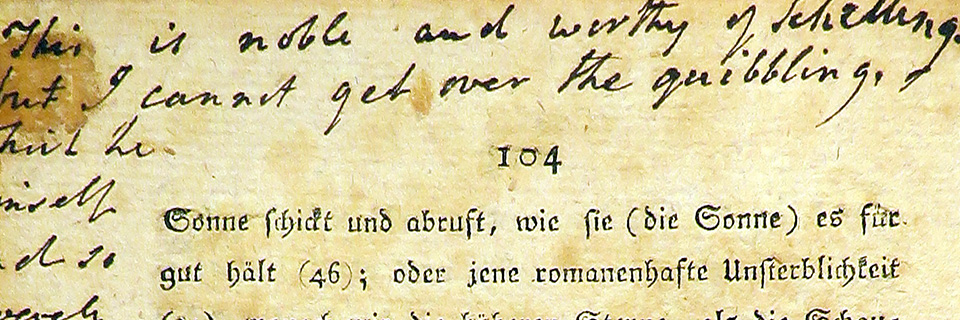 This is noble and worthy of Schelling.
but I cannot get over the quibbling,
he
104
Sonne schickt und abruft, wie sie (die Sonne) es für
gut hält (46); oder jene romanenhafte Unsterblichkeit